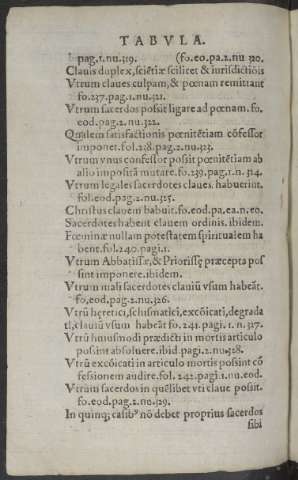 TABVLA.
pag.1.nu.319. (fo.eo.pa.2.nu 320.
Clauis duplex, sciẽtiæ scilicet & iurisdictiõis
Vtrum claues culpam, & pœnam remittant
fo.237.pag.1.nu.321.
Vtrum sacerdos possit ligare ad pœnam. fo.
eod.pag.2.nu.322.
Qualem satisfactionis pœnitẽtiam cõfessor
imponet. fol.238.pag.1.nu.323.
Vtrum vnus confessor possit pœnitẽtiam ab
alio impositã mutare. fo.239.pag.1.n.324.
Vtrum legales sacerdotes claues habuerint.
fol.eod.pag.2.nu.325.
Christus clauem habuit. fo.eod.pa.ea.n.eo.
Sacerdotes habent clauem ordinis. ibidem.
Fœminæ nullam potestatem spiritualem ha
bent. fol.240.pagi.1.
Vtrum Abbatissæ, & Priorissę præcepta pos
sint imponere. ibidem.
Vtrum mali sacerdotes clauiũ vsum habeãt.
fo,eod.pag.2.nu.326.
Vtrũ hęretici, schismatici, excõicati, degrada
ti, clauiũ vsum habeãt fo. 241. pagi.1.n.327.
Vtrũ huiusmodi prædicti in mortis articulo
possint absoluere. ibid pagi.2.nu.328.
Vtrũ excõicati in articulo mortis possint cõ
fessionem audire. fol. 242.pagi.1.nu.eod.
Vtrum sacerdos in quẽlibet vti claue possit.
fo.eod.pag.2.nu.329.
In quinq; casibꝰ nõ debet proprius sacerdos
sibi